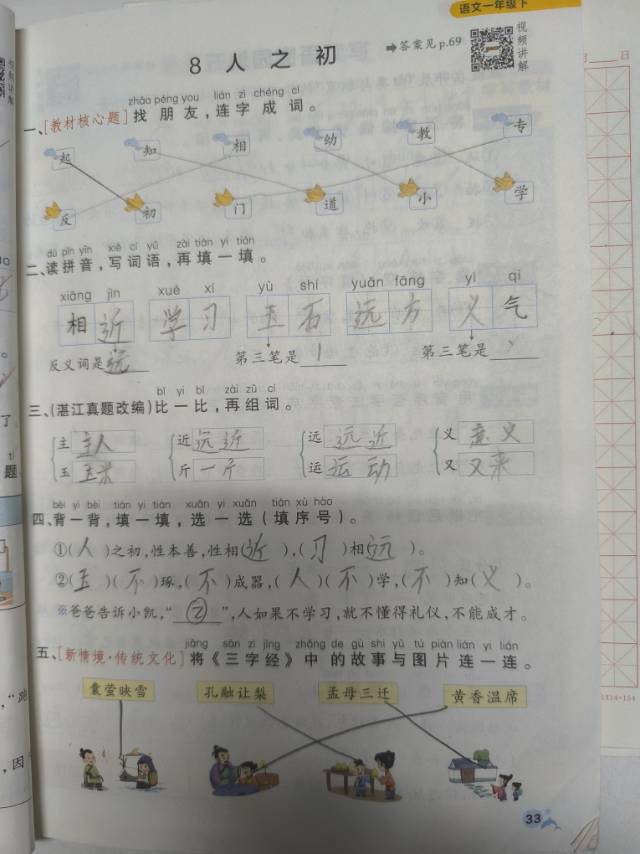 语文一年级下
8 人 之 初
➡答案见p.69
视频讲解
zhǎo péng you lián zì chéng cí
一、[教材核心题]找朋友,连字成词。
起 知 相 幼 教 专
反 初 门 道 小 学
dú pīn yīn xiě cí yǔ zài tián yi tián
二、读拼音,写词语,再填一填。
xiāng jìn xué xí yù shí yuǎn fāng yì qi
相近 学习 玉石 远方 义气
反义词是远 第三笔是丨 第三笔是
bǐ yi bǐ zài zǔ cí
三、(湛江真题改编)比一比,再组词。
主 主人 近 远近 远 远近 义 意义
玉 玉米 斤 一斤 运 运动 又 又来
bèi yi bèi tián yi tián xuǎn yi xuǎn tián xù hào
四、背一背,填一填,选一选(填序号)。
①(人)之初,性本善,性相(近),(习)相(远)。
②(玉)(不)琢,(不)成器,(人)(不)学,(不)知(义)。
※爸爸告诉小凯,“②”,人如果不学习,就不懂得礼仪,不能成才。
jiāng sān zì jīng zhōng de gù shi yǔ tú piàn lián yi lián
五、[新情境·传统文化]将《三字经》中的故事与图片连一连。
囊萤映雪 孔融让梨 孟母三迁 黄香温席
33